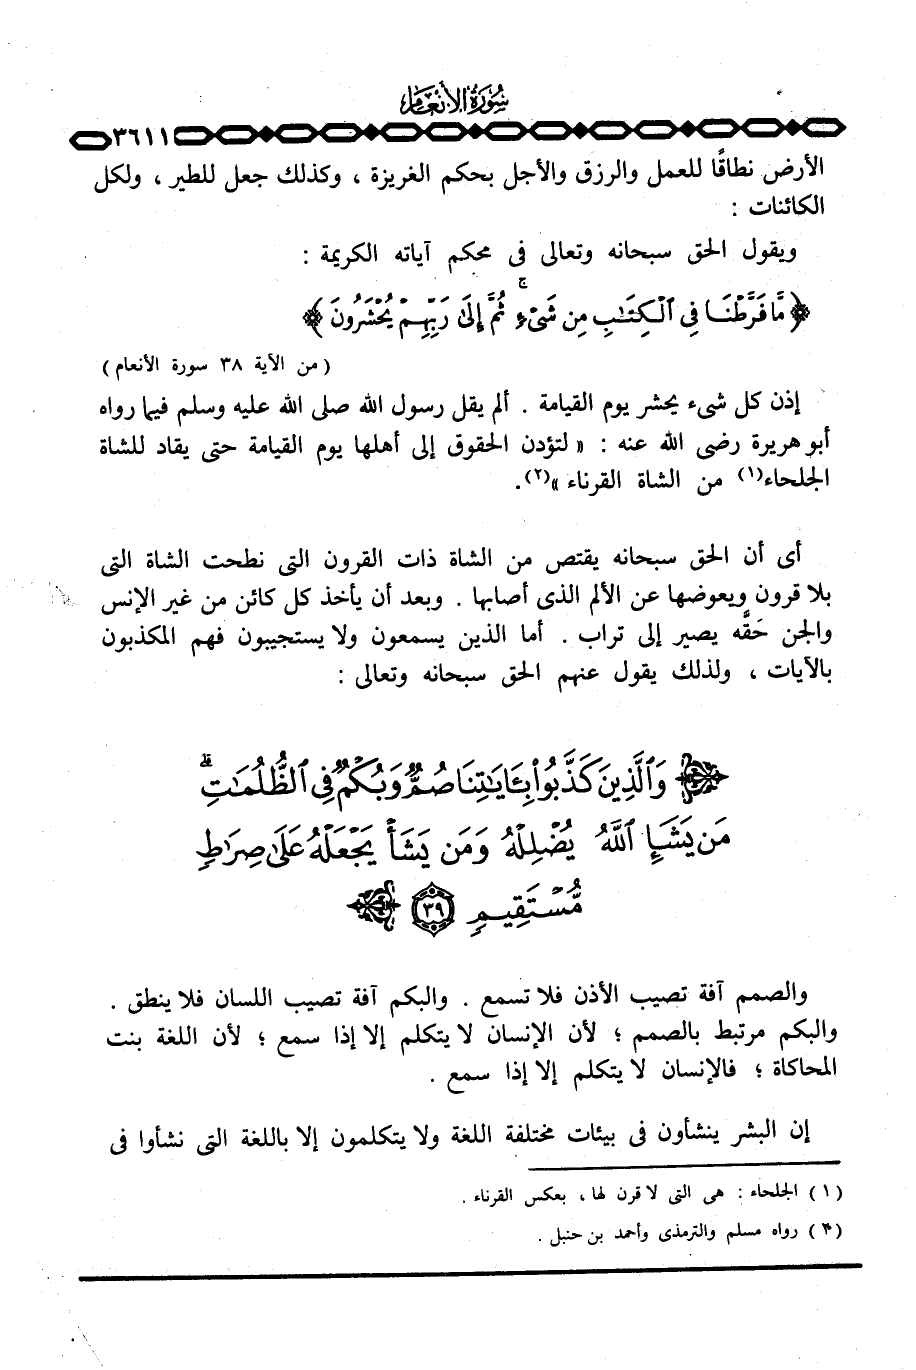 سُورَةُ الأَنْعَام
٣٦١١
الأرض نطاقًا للعمل والرزق والأجل بحكم الغريزة ، وكذلك جعل للطير ، ولكل
الكائنات :
ويقول الحق سبحانه وتعالى فى محكم آياته الكريمة :
﴿ مَّا فَرَّطْنَا فِى ٱلْكِتَٰبِ مِن شَىْءٍ ۚ ثُمَّ إِلَىٰ رَبِّهِمْ يُحْشَرُونَ ﴾
( من الآية ٣٨ سورة الأنعام )
إذن كل شىء يحشر يوم القيامة . ألم يقل رسول الله صلى الله عليه وسلم فيما رواه
أبو هريرة رضى الله عنه : « لتؤدن الحقوق إلى أهلها يوم القيامة حتى يقاد للشاة
الجلحاء(١) من الشاة القرناء »(٢).
أى أن الحق سبحانه يقتص من الشاة ذات القرون التى نطحت الشاة التى
بلا قرون ويعوضها عن الألم الذى أصابها . وبعد أن يأخذ كل كائن من غير الإنس
والجن حَقَّه يصير إلى تراب . أما الذين يسمعون ولا يستجيبون فهم المكذبون
بالآيات ، ولذلك يقول عنهم الحق سبحانه وتعالى :
وَٱلَّذِينَ كَذَّبُوا۟ بِـَٔايَٰتِنَا صُمٌّ وَبُكْمٌ فِى ٱلظُّلُمَٰتِ ۗ
مَن يَشَإِ ٱللَّهُ يُضْلِلْهُ وَمَن يَشَأْ يَجْعَلْهُ عَلَىٰ صِرَٰطٍ
مُّسْتَقِيمٍ ٣٩
والصمم آفة تصيب الأذن فلا تسمع . والبكم آفة تصيب اللسان فلا ينطق .
والبكم مرتبط بالصمم ؛ لأن الإنسان لا يتكلم إلا إذا سمع ؛ لأن اللغة بنت
المحاكاة ؛ فالإنسان لا يتكلم إلا إذا سمع .
إن البشر ينشأون فى بيئات مختلفة اللغة ولا يتكلمون إلا باللغة التى نشأوا فى
( ١ ) الجلحاء : هى التى لا قرن لها ، بعكس القرناء .
( ٢ ) رواه مسلم والترمذى وأحمد بن حنبل .